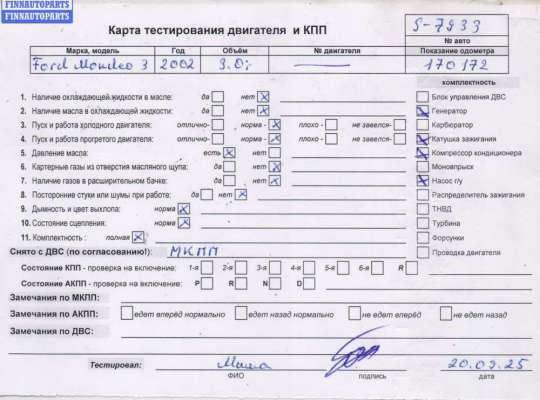 FINNAUTOPARTS
FINNAUTOPARTS
Карта тестирования двигателя и КПП
S-7933
№ авто
Марка, модель Год Объём № двигателя Показание одометра
Ford Mondeo 3 2002 170172
комплектность
1. Наличие охлаждающей жидкости в масле: да нет
Блок управления ДВС
2. Наличие масла в охлаждающей жидкости: да нет
Генератор
3. Пуск и работа холодного двигателя: отлично- норма - плохо - не завелся-
Карбюратор
4. Пуск и работа прогретого двигателя: отлично- норма - плохо - не завелся-
Катушка зажигания
5. Давление масла: есть нет
Компрессор кондиционера
6. Картерные газы из отверстия масляного щупа: да нет
Моновпрыск
7. Наличие газов в расширительном бачке: да нет
Насос г/у
8. Посторонние стуки или шумы при работе: да нет
Распределитель зажигания
9. Дымность и цвет выхлопа: норма
ТНВД
10. Состояние сцепления: норма
Турбина
11. Комплектность : полная
Форсунки
Снято с ДВС (по согласованию!): МКПП
Проводка двигателя
Состояние КПП - проверка на включение: 1-я 2-я 3-я 4-я 5-я 6-я R
Состояние АКПП - проверка на включение: P R N D
Замечания по МКПП:
Замечания по АКПП: едет вперёд нормально едет назад нормально не едет вперёд не едет назад
Замечания по ДВС:
Тестировал: 20.03.25
ФИО подпись дата